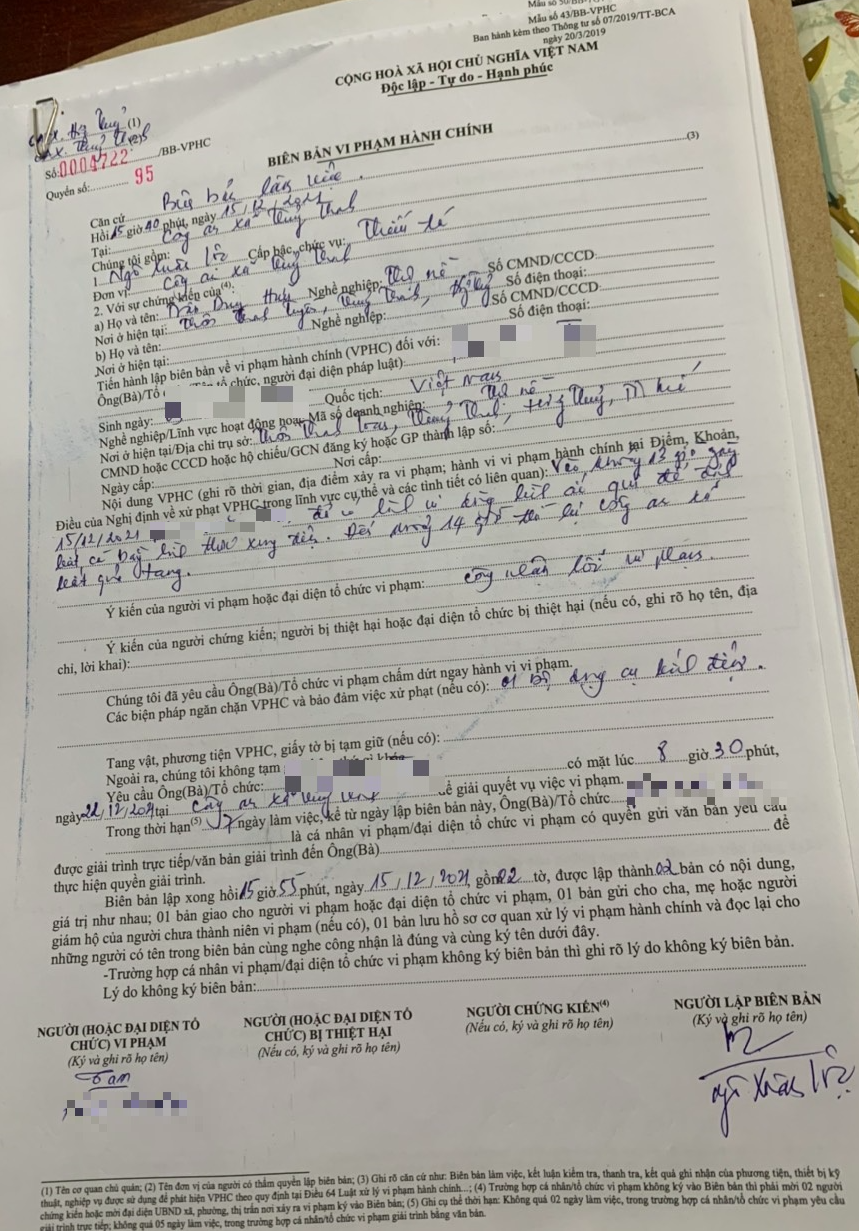 Mẫu số 43/BB-VPHC
Ban hành kèm theo Thông tư số 07/2019/TT-BCA
ngày 20/3/2019
CỘNG HOÀ XÃ HỘI CHỦ NGHĨA VIỆT NAM
Độc lập - Tự do - Hạnh phúc
(1)
(2)
Số: 0004722 /BB-VPHC
Quyển số: 95
BIÊN BẢN VI PHẠM HÀNH CHÍNH
(3)
Căn cứ Biên bản làm việc.
Hồi 15 giờ 40 phút, ngày 15/12/2021
Tại: Công an xã
Chúng tôi gồm:
1. Ngô Xuân Cấp bậc, chức vụ: Thiếu tá
Đơn vị: Công an xã
2. Với sự chứng kiến của(4):
a) Họ và tên: Trần Duy Nghề nghiệp: thợ nề Số CMND/CCCD:
Nơi ở hiện tại: Thôn Số điện thoại:
b) Họ và tên: Nghề nghiệp: Số CMND/CCCD:
Nơi ở hiện tại: Số điện thoại:
Tiến hành lập biên bản về vi phạm hành chính (VPHC) đối với:
Ông(Bà)/Tổ chức, người đại diện pháp luật):
Sinh ngày: Quốc tịch: Việt Nam
Nghề nghiệp/Lĩnh vực hoạt động Mã số doanh nghiệp: thợ nề
Nơi ở hiện tại/Địa chỉ trụ sở: Thôn
CMND hoặc CCCD hoặc hộ chiếu/GCN đăng ký hoặc GP thành lập số:
Ngày cấp: Nơi cấp:
Nội dung VPHC (ghi rõ thời gian, địa điểm xảy ra vi phạm; hành vi vi phạm hành chính tại Điểm, Khoản,
Điều của Nghị định về xử phạt VPHC trong lĩnh vực cụ thể và các tình tiết có liên quan): Vào khoảng 13 giờ ngày
15/12/2021 đã có
xung điện. Đến khoảng 14 giờ thì bị công an xã
quả tang.
Ý kiến của người vi phạm hoặc đại diện tổ chức vi phạm: công nhận lỗi vi phạm.
Ý kiến của người chứng kiến; người bị thiệt hại hoặc đại diện tổ chức bị thiệt hại (nếu có, ghi rõ họ tên, địa
chỉ, lời khai):
Chúng tôi đã yêu cầu Ông(Bà)/Tổ chức vi phạm chấm dứt ngay hành vi vi phạm.
Các biện pháp ngăn chặn VPHC và bảo đảm việc xử phạt (nếu có): 01 bộ dụng cụ kích điện.
Tang vật, phương tiện VPHC, giấy tờ bị tạm giữ (nếu có):
Ngoài ra, chúng tôi không tạm
Yêu cầu Ông(Bà)/Tổ chức: có mặt lúc 8 giờ 30 phút,
ngày 22/12/2021 tại Công an xã để giải quyết vụ việc vi phạm.
Trong thời hạn(5) 7 ngày làm việc, kể từ ngày lập biên bản này, Ông(Bà)/Tổ chức
là cá nhân vi phạm/đại diện tổ chức vi phạm có quyền gửi văn bản yêu cầu
được giải trình trực tiếp/văn bản giải trình đến Ông(Bà) để
thực hiện quyền giải trình.
Biên bản lập xong hồi 15 giờ 55 phút, ngày 15/12/2021, gồm 02 tờ, được lập thành 02 bản có nội dung,
giá trị như nhau; 01 bản giao cho người vi phạm hoặc đại diện tổ chức vi phạm, 01 bản gửi cho cha, mẹ hoặc người
giám hộ của người chưa thành niên vi phạm (nếu có), 01 bản lưu hồ sơ cơ quan xử lý vi phạm hành chính và đọc lại cho
những người có tên trong biên bản cùng nghe công nhận là đúng và cùng ký tên dưới đây.
-Trường hợp cá nhân vi phạm/đại diện tổ chức vi phạm không ký biên bản thì ghi rõ lý do không ký biên bản.
Lý do không ký biên bản:
NGƯỜI (HOẶC ĐẠI DIỆN TỔ
CHỨC) VI PHẠM
(Ký và ghi rõ họ tên)
NGƯỜI (HOẶC ĐẠI DIỆN TỔ
CHỨC) BỊ THIỆT HẠI
(Nếu có, ký và ghi rõ họ tên)
NGƯỜI CHỨNG KIẾN(4)
(Nếu có, ký và ghi rõ họ tên)
NGƯỜI LẬP BIÊN BẢN
(Ký và ghi rõ họ tên)
Tam
Ngô Xuân
(1) Tên cơ quan chủ quản; (2) Tên đơn vị của người có thẩm quyền lập biên bản; (3) Ghi rõ căn cứ như: Biên bản làm việc, kết luận kiểm tra, thanh tra, kết quả ghi nhận của phương tiện, thiết bị kỹ
thuật, nghiệp vụ được sử dụng để phát hiện VPHC theo quy định tại Điều 64 Luật xử lý vi phạm hành chính...; (4) Trường hợp cá nhân/tổ chức vi phạm không ký vào Biên bản thì phải mời 02 người
chứng kiến hoặc mời đại diện UBND xã, phường, thị trấn nơi xảy ra vi phạm ký vào Biên bản; (5) Ghi cụ thể thời hạn: Không quá 02 ngày làm việc, trong trường hợp cá nhân/tổ chức vi phạm yêu cầu
giải trình trực tiếp; không quá 05 ngày làm việc, trong trường hợp cá nhân/tổ chức vi phạm giải trình bằng văn bản.